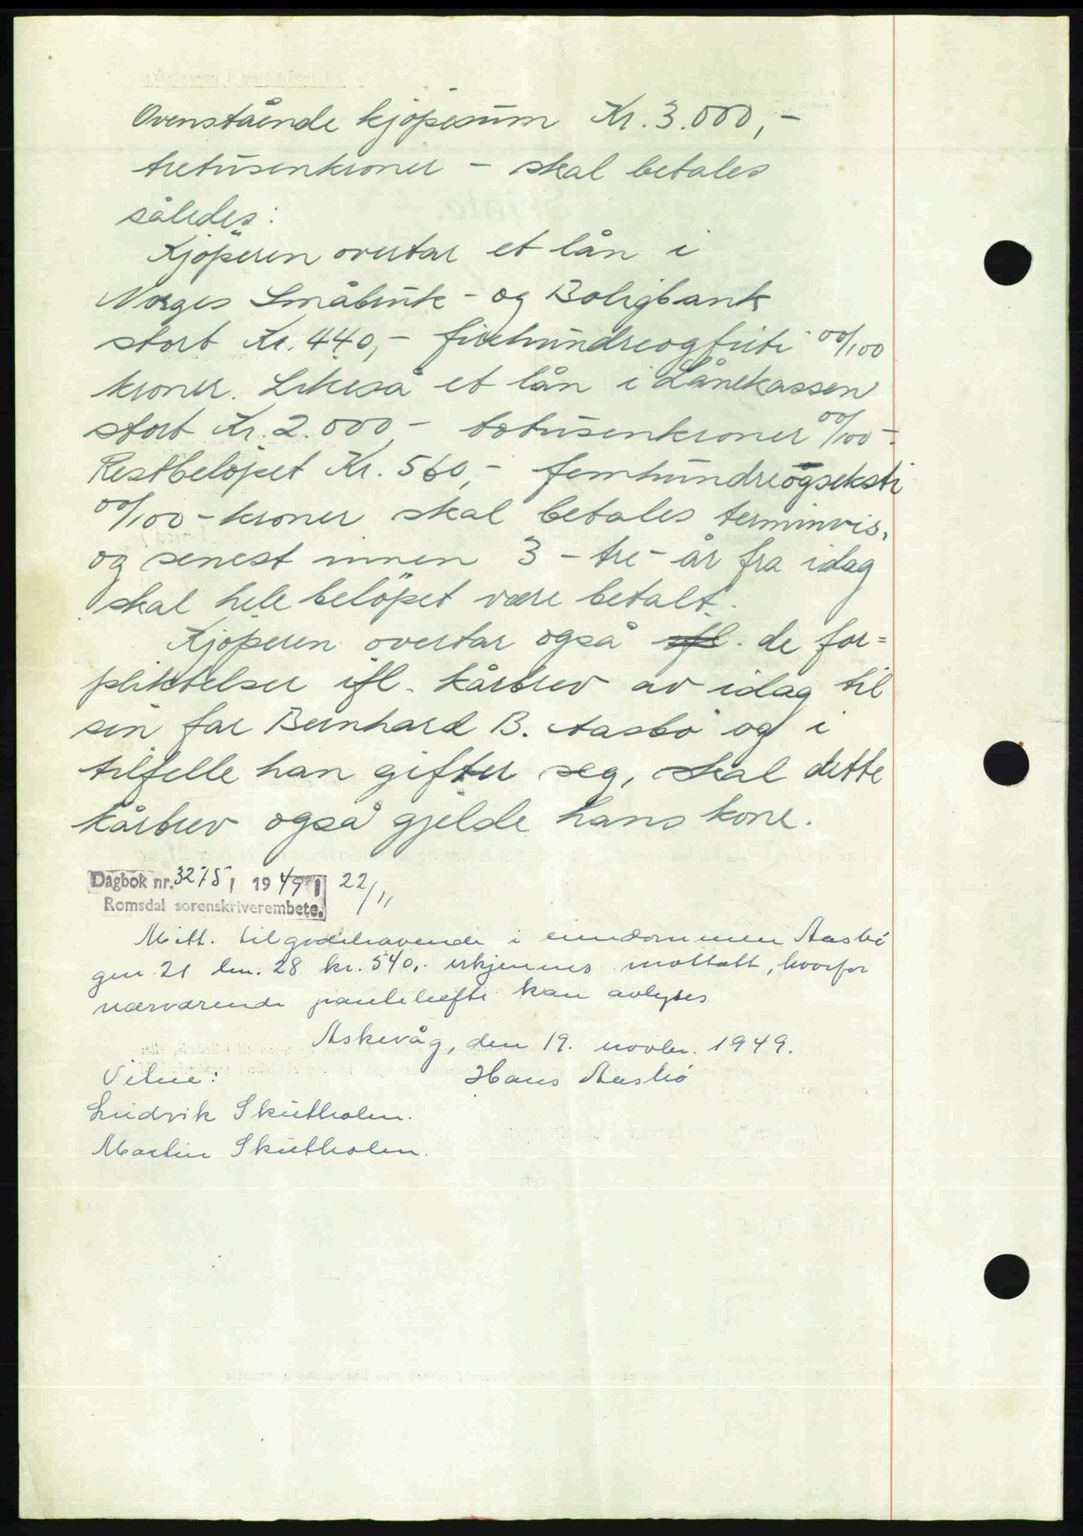 Ovenstående kjöpesum Kr. 3.000,-
tretusenkroner - skal betales
således:
Kjöperen overtar et lån i
Norges Småbruk- og Boligbank
stort Kr. 440,- firehundreogfirti 00/100
kroner. Likeså et lån i Lånekassen
stort Kr. 2.000,- totusenkroner 00/100-.
Restbelöpet Kr. 560,- femhundreogseksti
00/100-kroner skal betales terminvis,
og senest innen 3 - tre - år fra idag
skal hele belöpet være betalt.
Kjöperen overtar også ifl. de for=
pliktelser ifl. kårbrev av idag til
sin far Bernhard B. Aasbö og i
tilfelle han gifter seg, skal dette
kårbrev også gjelde hans kone.
Dagbok nr. 3275, 1949 22/11
Romsdal sorenskriverembete.
Mitt. tilgodehavende i eiendommen Aasbö
gnr. 21 bnr. 28 kr. 540,- erkjennes mottatt, hvorfor
nærværende pantehefte kan avlyses
Askevåg, den 19. novbr. 1949.
Vitne: Hans Aasbö
Ludvik Skutholm.
Martin Skutholm.